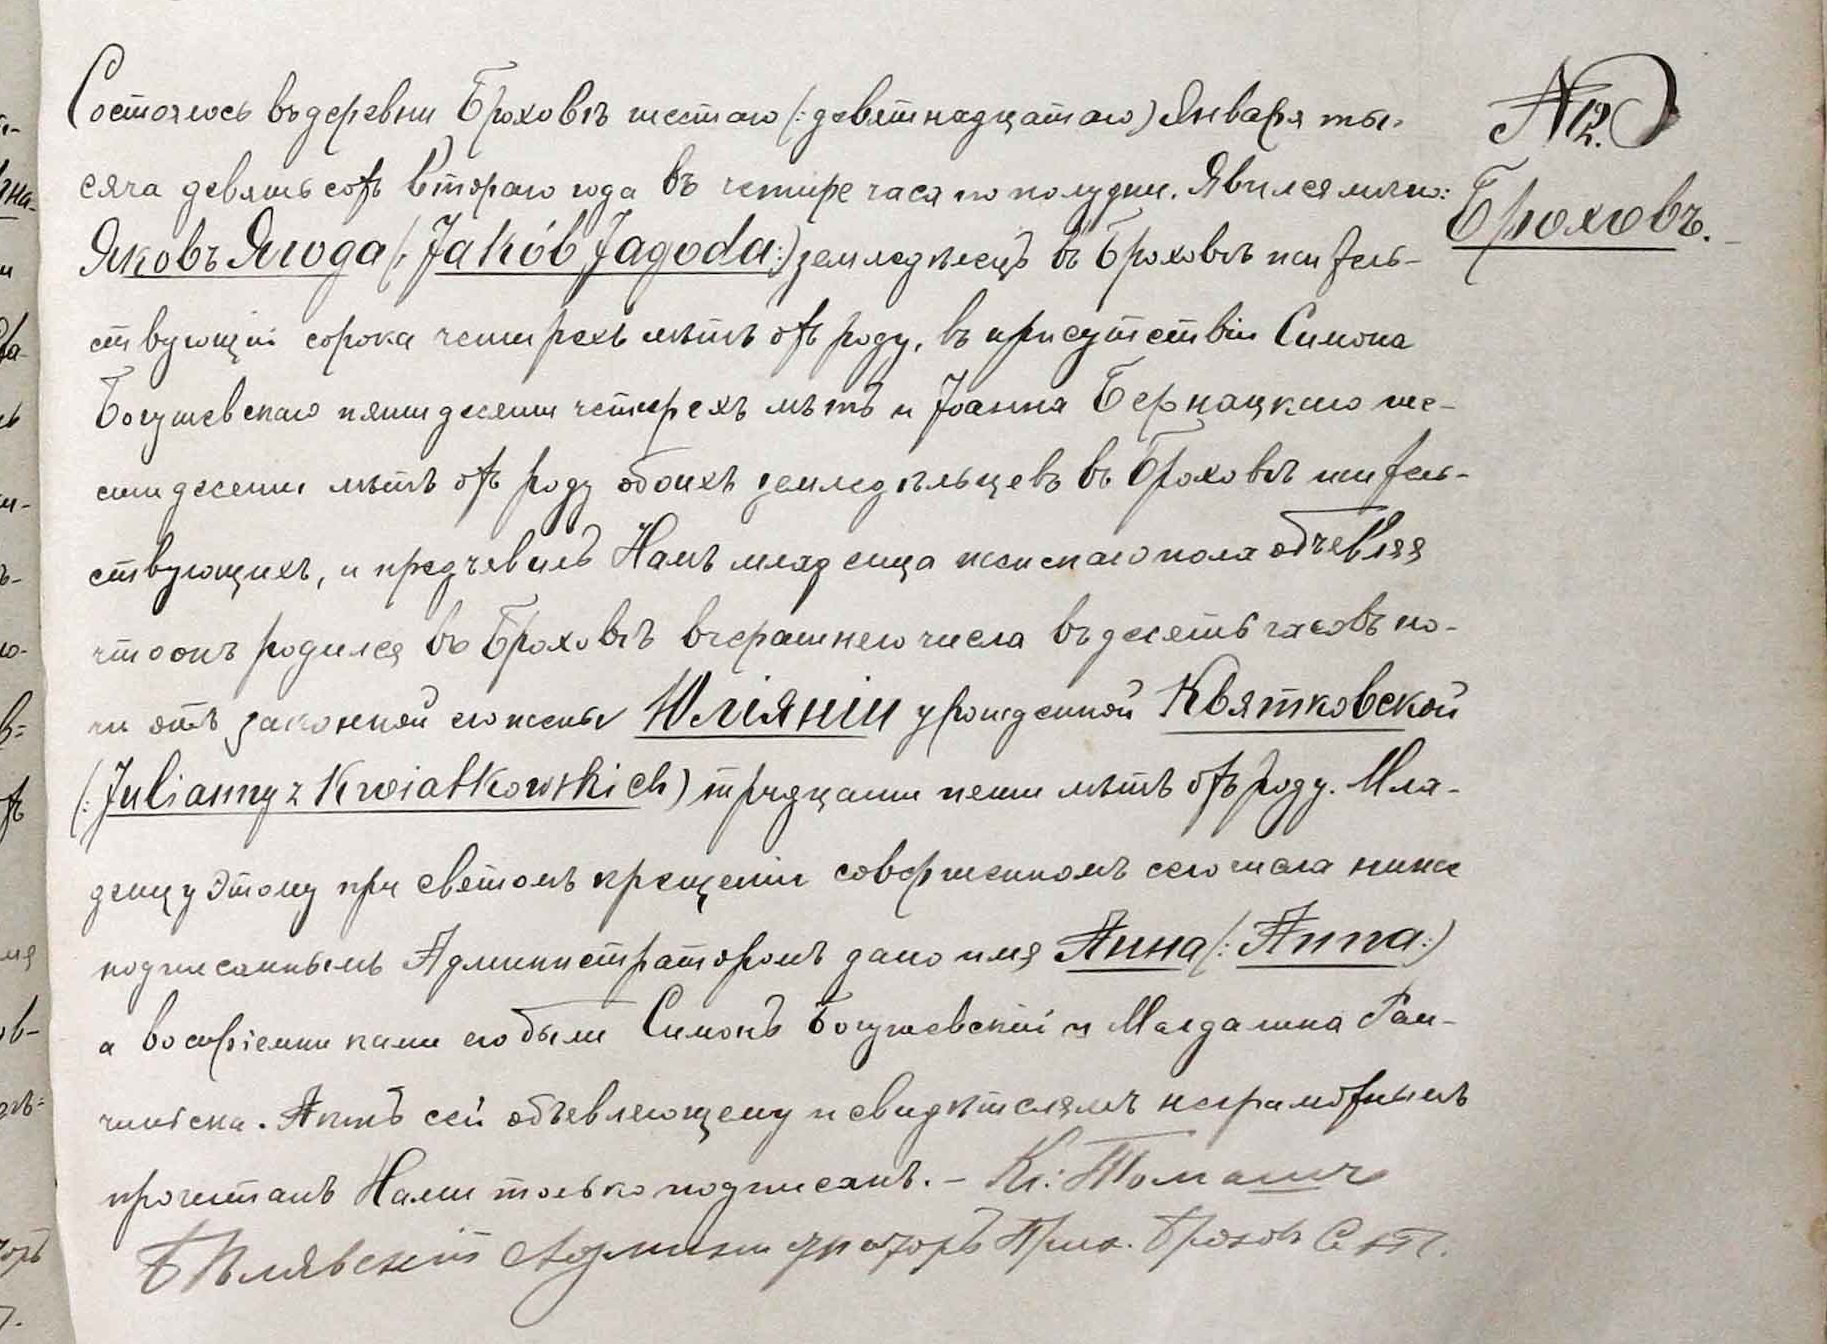 Состоялось въ деревни Броховѣ шестаго (: девятнадцатаго) Января ты-
сяча девятьсотъ втораго года въ четыре часа по полудни. Явился лично:
Яковъ Ягода (: Jakób Jagoda:) земледѣлецъ въ Броховѣ жител-
ствующій сорока четырехъ лѣтъ отъ роду, въ присутствіи Симона
Богушевскаго пятидесяти четырехъ лѣтъ и Іоанна Бернацкаго ше-
стидесяти лѣтъ отъ роду обоихъ земледѣльцевъ въ Броховѣ житель-
ствующихъ, и предъявилъ Намъ младенца женскаго пола объявляя
что онъ родился въ Броховѣ вчерашнего числа въ десять часовъ но-
чи отъ законной его жены Юліянны урожденной Квятковской
(: Julianny z Kwiatkowskich) тридцати пяти лѣтъ отъ роду. Мла-
денцу этому при святомъ крещеніи совершенномъ сего числа ниже
подписаннымъ Администраторомъ дано имя Анна (: Anna:)
а воспріемниками его были Симонъ Богушевскій и Магдалина Рам-
Актъ сей объявляющему и свидѣтелямъ неграмотнымъ
прочитанъ Нами только подписанъ. – Кс: Томашъ
Бѣлявскій Администраторъ Прих. Брохов С. А. Г.
№ 12.
Броховъ.